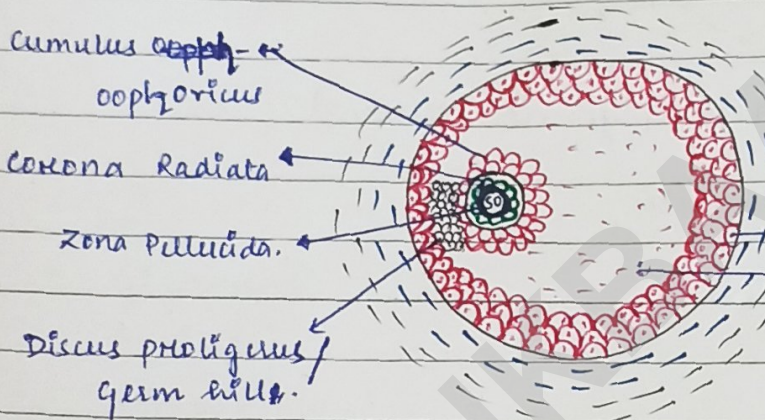 Cumulus
oophoricus
Corona Radiata
Zona Pellucida.
SO
Discus proligerus/
Germ hills.